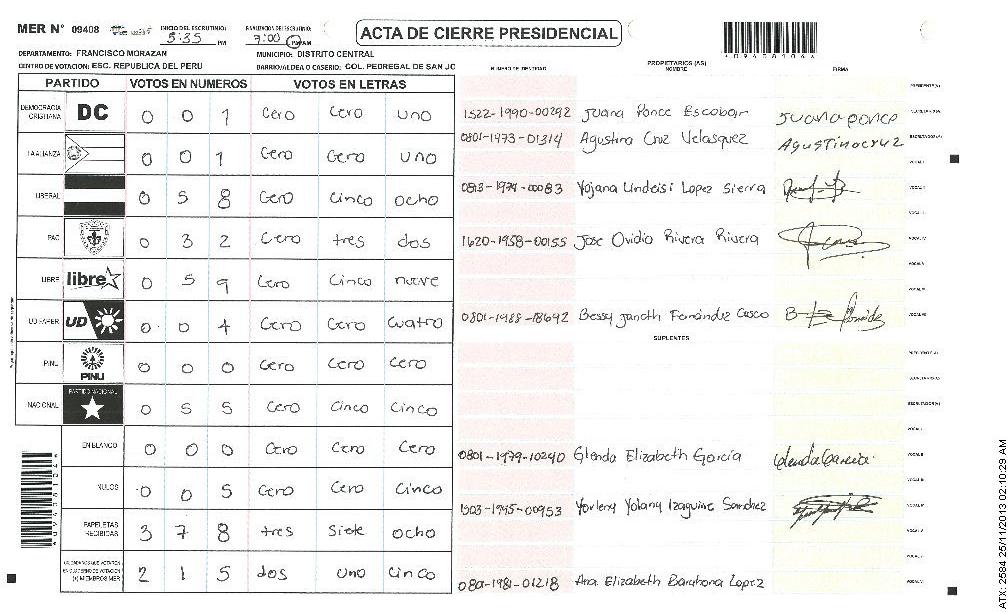 MER N° 09408
INICIO DEL ESCRUTINIO: 5:35 PM
FINALIZACION DEL ESCRUTINIO: 7:00 PM AM
ACTA DE CIERRE PRESIDENCIAL
DEPARTAMENTO: FRANCISCO MORAZAN
MUNICIPIO: DISTRITO CENTRAL
CENTRO DE VOTACION: ESC. REPUBLICA DEL PERU
BARRIO/ALDEA O CASERIO: COL. PEDREGAL DE SAN JC
PARTIDO VOTOS EN NUMEROS VOTOS EN LETRAS
DEMOCRACIA CRISTIANA DC 0 0 1 Cero Cero uno
LA ALIANZA 0 0 1 Cero Cero uno
LIBERAL 0 5 8 Cero Cinco ocho
PAC 0 3 2 Cero tres dos
LIBRE libre 0 5 9 Cero Cinco nueve
UD FAPER UD 0 0 4 Cero Cero Cuatro
PINU PINU 0 0 0 Cero Cero Cero
NACIONAL PARTIDO NACIONAL 0 5 5 Cero Cinco Cinco
EN BLANCO 0 0 0 Cero Cero Cero
NULOS 0 0 5 Cero Cero Cinco
PAPELETAS RECIBIDAS 3 7 8 tres Siete ocho
CIUDADANOS QUE VOTARON EN CUADERNO DE VOTACION (+) MIEMBROS MER 2 1 5 dos uno Cinco
NUMERO DE IDENTIDAD PROPIETARIOS (AS) NOMBRE FIRMA
1522-1990-00292 Juana Ponce Escobar Juana ponce
0801-1973-01314 Agustina Cruz Velasquez Agustinacruz
Yojana Lindeisi Lopez Sierra
1620-1958-00155 Jose Ovidio Rivera Rivera
0801-1988-18692 Bessy Janeth Fernández Cusco
SUPLENTES
0801-1979-10240 Glenda Elizabeth García Glenda García
Yorleny Yolany Izaguirre Sanchez
0801-1981-01218 Ana Elizabeth Barahona Lopez
ATX-2584 25/11/2013 02:10:29 AM